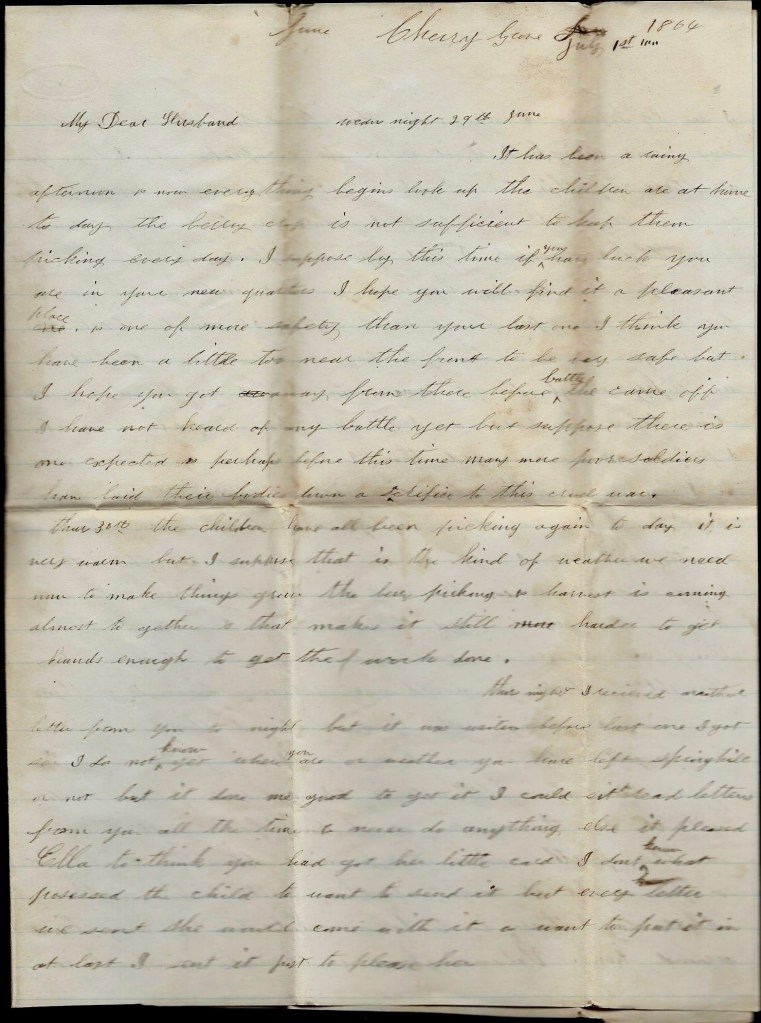 June Cherry Grove July 1st 1864
My Dear Husband wedns night 29th June
It has been a rainy
afternoon & now every thing begins look up the children are at home
to day the berry crop is not sufficient to keep them
picking every day. I suppose by this time if you have luck you
are in your new quarters I hope you will find it a pleasant
place. & one of more safety than your last one I think you
have been a little too near the front to be very safe but
I hope you got away from there before battle came off
I have not heard of any battle yet but suppose there is
one expected & perhaps before this time many more poor soldiers
have laid their bodies down a sacrifise to this cruel war.
thurs 30th the children have all been picking again to day it is
very warm but I suppose that is the kind of weather we need
now to make things grow the bery picking & harvest is coming
almost to gether & that makes it still more harder to get
hands enough to get the work done.
thurs night I recieved another
letter from you to night but it was writen before last one I got
so I do not know yet where you are or weather you have left springhill
or not but it done me good to get it I could sit & read letters
from you all the time & never do anything else it pleased
Ella to think you had got her little card I dont know what
posessed the child to want to send it but every letter
we sent she would come with it & want to put it in
at last I sent it just to please her